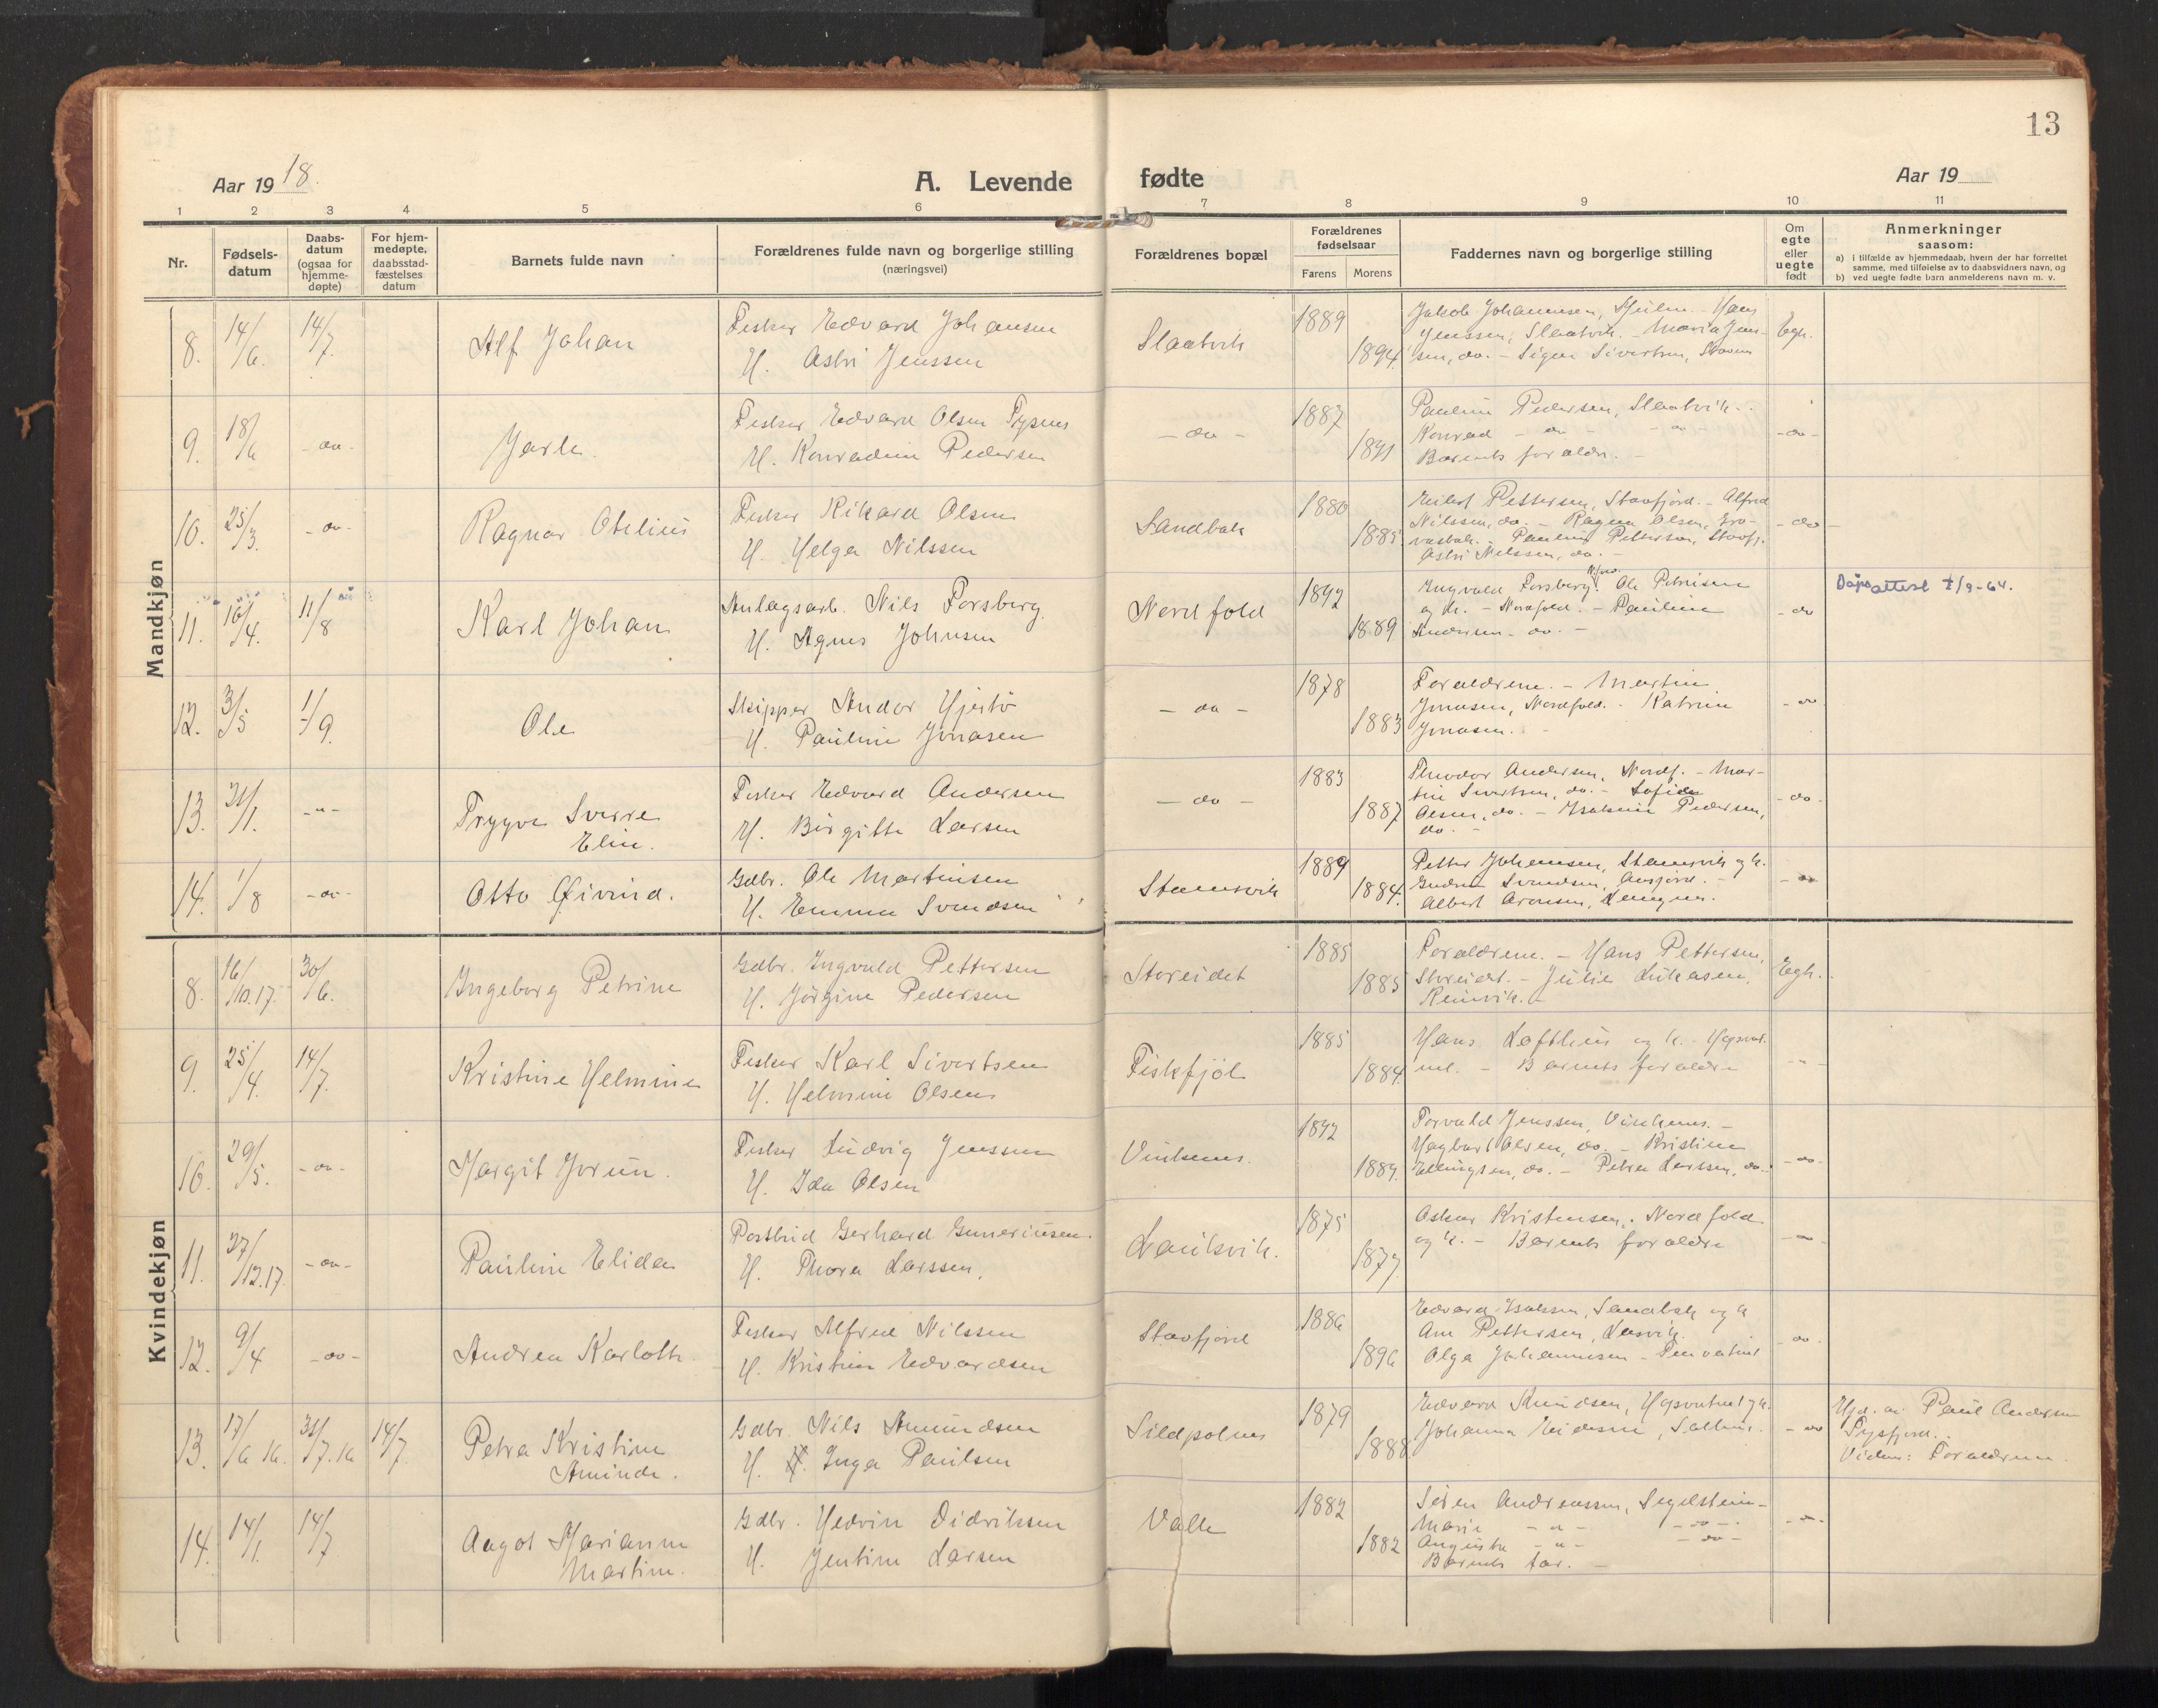 13
Aar 1918.
A. Levende fødte
Aar 19
1 2 3 4 5 6 7 8 9 10 11
Nr.
Fødsels-
datum
Daabs-
datum
(ogsaa for
hjemme-
døpte)
For hjem-
medøpte,
daabsstad-
fæstelses
datum
Barnets fulde navn
Forældrenes fulde navn og borgerlige stilling
(næringsvei)
Forældrenes bopæl
Forældrenes
fødselsaar
Farens Morens
Faddernes navn og borgerlige stilling
Om
egte
eller
uegte
født
Anmerkninger
saasom:
a) i tilfælde av hjemmedaab, hvem der har forrettet
samme, med tilføielse av to daabsvidners navn, og
b) ved uegte fødte barn anmelderens navn m. v.
Mandkjøn
8. 14/6. 14/7. Alf Johan
Fisker Edvard Johansen
H. Astri Jenssen
Slaatvik 1889 1894.
Jakob Johannesen, - Hans
Jenssen, Slaatvik. - Maria Jens-
sen, do. - Signe Sivertsen,
Egte.
9. 18/6 - do - Jarle.
Fisker Edvard Olsen Tysnes
H. Konradine Pedersen
- do - 1887 1891
Pauline Pedersen, Slaatvik. -
Konrad - do - - do -
Barnets forældre. -
- do -
10. 25/3. - do - Ragnar Otelius
Fisker Rikard Olsen
H. Helga Nilssen
Sandbak 1880 1885
Pettersen, Stavfjord. - Alfred
Nilssen, do. - Ragna Olsen, Gro-
vasbak. - Pauline Pettersen, Stavfj.
Astri Nilssen, do. -
- do -
11. 16/4. 11/8 Karl Johan
Anlægsarb. Nils Forsberg.
H. Agnes Johnsen
Nordfold 1892 1889
Ingvald Forsberg, Ole Petrisen
og h. - Nordfold. - Pauline
Andersen - do. -
- do
Dåpsattest 7/9-64.
12. 3/5 1/9. Ole
Skipper Andor Hjertø
H. Pauline Jonasen
- do - 1878 1883
Forældrene. - Martin
Jonasen, Nordfold. - Katrine
Jonasen. -
- do
13. 31/1. - " - Trygve Sverre
Elin.
Fisker Edvard Andersen
H. Birgitte Larsen
- do - 1883 1887
Theodor Andersen, Nordf. - Mar-
tin Sivertsen, do. - Sofie
Olsen, do. - Isaksine Pedersen,
do. -
- do -
14. 1/8 - do - Otto Øivind.
Gdbr. Ole Martinsen
H. Emma Svendsen
Stamsvik 1889 1884.
Petter Johansen, Stamsvik og h.
Gudrun Svendsen, -
Albert Aronsen,
- do -
Kvindekjøn
8. 16/10.17. 30/6. Ingeborg Petrine
Gdbr. Ingvald Pettersen
H. Jørgine Pedersen
Storeidet 1885 1885
Forældrene. - Hans Pettersen,
Storeidet. - Julie Lukasen,
Reinvik. -
Egte.
9. 25/4. 14/7. Kristine Helmine
Fisker Karl Sivertsen
H. Helmine Olsen
Fiskfjöl 1885 1884.
Hans Lofthus og h. - Hopvat-
net. - Barnets forældre
- " -
10. 29/5. - do - Margit Jorun.
Fisker Ludvig Jenssen
H. Ida Olsen
Vinkenes. 1892 1889.
Torvald Jenssen, Vinkenes. -
Hagbart Olsen, do. - Kristine
Ellingsen, do. - Petra Larssen, do.
- do -
11. 27/12.17. - do - Pauline Elida
Postbud Gerhard Guneriusen.
H. Thora Larssen.
Lauksvik. 1875 1877.
Oskar Kristensen, Nordfold
og h. - Barnets forældre
- do -
12. 9/4 - do - Andrea Karlotte.
Fisker Alfred Nilssen
H. Kristine Edvardsen
Stavfjord 1886 1896
Edvard Isaksen, Sandbak og h
Ane Pettersen,
Olga Johannesen -
- do -
13. 17/6 16. 31/7. 16 14/7. Petra Kristine
Aminde.
Gdbr. Nils Amundsen
H. Inga Paulsen
Sildpolnes 1879 1888
Edvard Knudsen, Hopvatnet og h.
Johanna
- do
Hjd. av Paul Andersen
Tysfjord.
Vidner: Forældrene.
14. 14/1. 14/7. Aagot Marianne
Martine.
Gdbr. Hedvin Didriksen
H. Jentine Larsen
Valle 1882 1882
Søren Andreassen, Segelstein -
Marie - " - - do -
Augusta - " - - do -
Barnets far. -
- " -